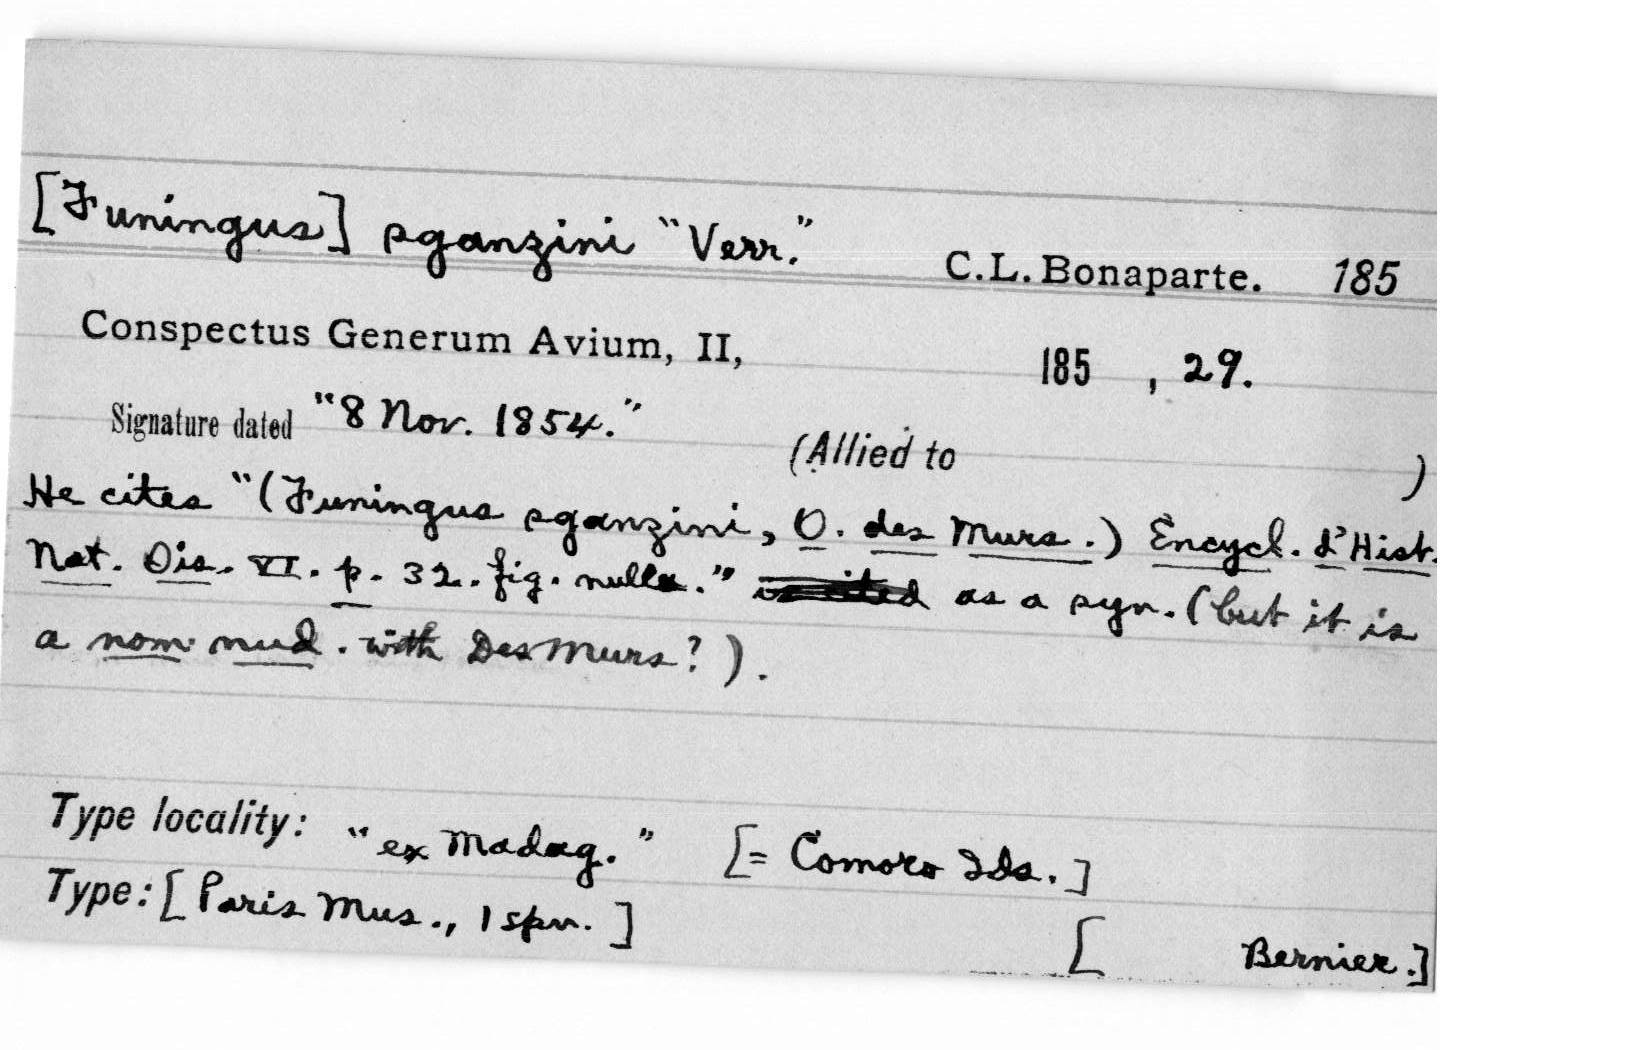 [Funingus] sganzini "Verr."
C.L. Bonaparte. 185
Conspectus Generum Avium, II, 185 , 29.
Signature dated "8 Nov. 1854."
(Allied to )
He cites "(Funingus sganzini, O. des Murs.) Encycl. d'Hist.
Nat. Ois. VI. p. 32. fig. nulla." is cited as a syn. (but it is
a nom. nud. with Des Murs?).
Type locality: "ex Madag." [= Comoro Ids.]
Type: [Paris Mus., 1 spm. ]
[ Bernier.]